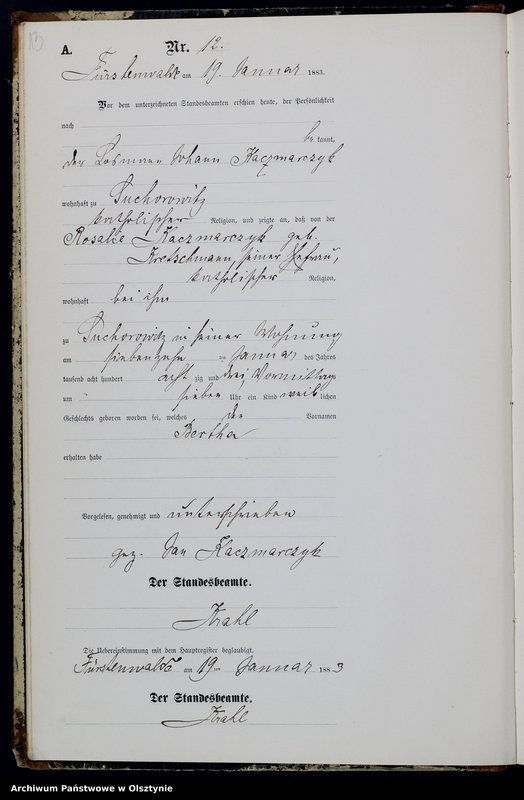 13
A.
Nr. 12.
Fürstenwalde am 19. Januar 1883.
Vor dem unterzeichneten Standesbeamten erschien heute, der Persönlichkeit
nach
be kannt,
der Losmann Johann Kaczmarczyk
wohnhaft zu Suchorowitz
katholischer Religion, und zeigte an, daß von der
Rosalie Kaczmarczyk geb.
Kretschmann, seiner Ehefrau,
katholischer Religion,
wohnhaft bei ihm
zu Suchorowitz in seiner Wohnung
am siebenzehn ten Januar des Jahres
tausend acht hundert acht zig und drei Vormittag
um sieben Uhr ein Kind weib lichen
Geschlechts geboren worden sei, welches den Vornamen
Bertha
erhalten habe
Vorgelesen, genehmigt und unterschrieben
gez. Jan Kaczmarczyk
Der Standesbeamte.
Krahl
Die Uebereinstimmung mit dem Hauptregister beglaubigt.
Fürstenwalde am 19 ten Januar 1883
Der Standesbeamte.
Krahl
Archiwum Państwowe w Olsztynie